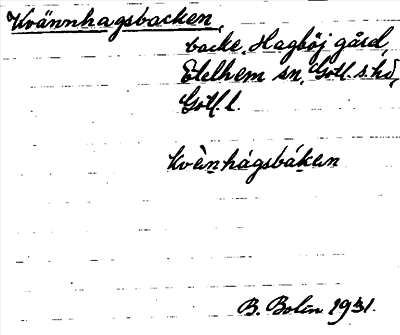 Kvännhagsbacken,
backe, Hagböj gård,
Etelhem sn, Gotl. s. hd,
Gotl. l.
kvènhágsbáken
B. Bolin 1931.